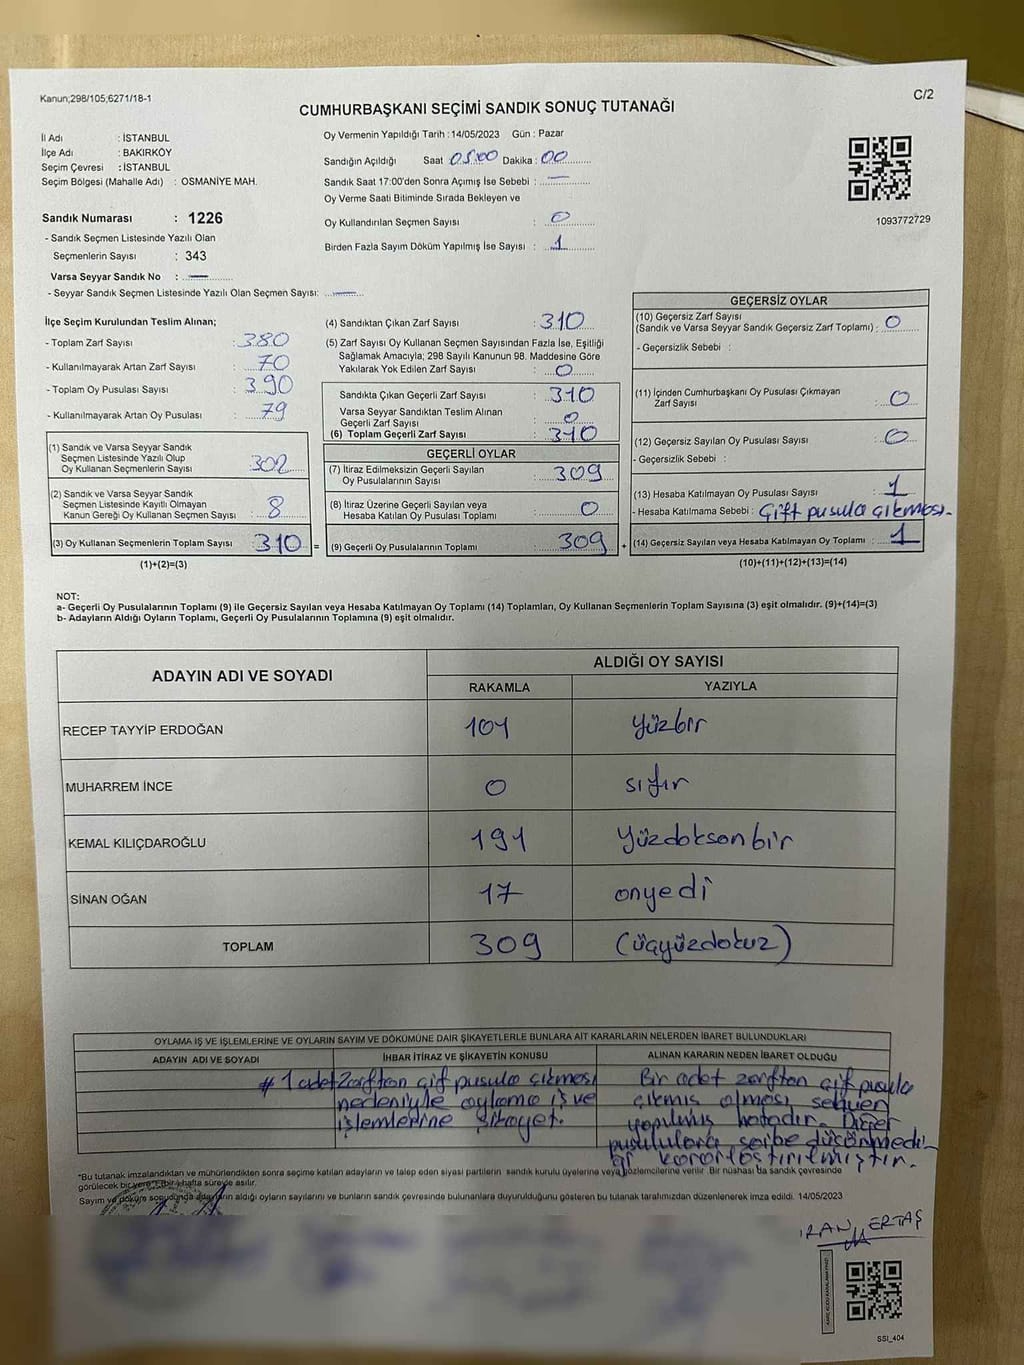 Kanun;298/105;6271/18-1
C/2
CUMHURBAŞKANI SEÇİMİ SANDIK SONUÇ TUTANAĞI
İl Adı : İSTANBUL
İlçe Adı : BAKIRKÖY
Seçim Çevresi : İSTANBUL
Seçim Bölgesi (Mahalle Adı) : OSMANİYE MAH.
Sandık Numarası : 1226
- Sandık Seçmen Listesinde Yazılı Olan
Seçmenlerin Sayısı : 343
Varsa Seyyar Sandık No : —
- Seyyar Sandık Seçmen Listesinde Yazılı Olan Seçmen Sayısı: —
Oy Vermenin Yapıldığı Tarih : 14/05/2023 Gün : Pazar
Sandığın Açıldığı Saat 05:00 Dakika : 00
Sandık Saat 17:00'den Sonra Açımış İse Sebebi : —
Oy Verme Saati Bitiminde Sırada Bekleyen ve
Oy Kullandırılan Seçmen Sayısı : 0
Birden Fazla Sayım Döküm Yapılmış İse Sayısı : 1
1093772729
İlçe Seçim Kurulundan Teslim Alınan;
- Toplam Zarf Sayısı : 380
- Kullanılmayarak Artan Zarf Sayısı : 70
- Toplam Oy Pusulası Sayısı : 390
- Kullanılmayarak Artan Oy Pusulası : 79
(1) Sandık ve Varsa Seyyar Sandık
Seçmen Listesinde Yazılı Olup
Oy Kullanan Seçmenlerin Sayısı : 302
(2) Sandık ve Varsa Seyyar Sandık
Seçmen Listesinde Kayıtlı Olmayan
Kanun Gereği Oy Kullanan Seçmen Sayısı : 8
(3) Oy Kullanan Seçmenlerin Toplam Sayısı : 310 =
(1)+(2)=(3)
(4) Sandıktan Çıkan Zarf Sayısı : 310
(5) Zarf Sayısı Oy Kullanan Seçmen Sayısından Fazla İse, Eşitliği
Sağlamak Amacıyla; 298 Sayılı Kanunun 98. Maddesine Göre
Yakılarak Yok Edilen Zarf Sayısı : 0
Sandıkta Çıkan Geçerli Zarf Sayısı : 310
Varsa Seyyar Sandıktan Teslim Alınan
Geçerli Zarf Sayısı : 0
(6) Toplam Geçerli Zarf Sayısı : 310
GEÇERLİ OYLAR
(7) İtiraz Edilmeksizin Geçerli Sayılan
Oy Pusulalarının Sayısı : 309
(8) İtiraz Üzerine Geçerli Sayılan veya
Hesaba Katılan Oy Pusulası Toplamı : 0
(9) Geçerli Oy Pusulalarının Toplamı : 309 +
GEÇERSİZ OYLAR
(10) Geçersiz Zarf Sayısı
(Sandık ve Varsa Seyyar Sandık Geçersiz Zarf Toplamı) : 0
- Geçersizlik Sebebi :
(11) İçinden Cumhurbaşkanı Oy Pusulası Çıkmayan
Zarf Sayısı : 0
(12) Geçersiz Sayılan Oy Pusulası Sayısı : 0
- Geçersizlik Sebebi :
(13) Hesaba Katılmayan Oy Pusulası Sayısı : 1
- Hesaba Katılmama Sebebi : Çift pusula çıkması.
(14) Geçersiz Sayılan veya Hesaba Katılmayan Oy Toplamı : 1
(10)+(11)+(12)+(13)=(14)
NOT:
a- Geçerli Oy Pusulalarının Toplamı (9) ile Geçersiz Sayılan veya Hesaba Katılmayan Oy Toplamı (14) Toplamları, Oy Kullanan Seçmenlerin Toplam Sayısına (3) eşit olmalıdır. (9)+(14)=(3)
b- Adayların Aldığı Oyların Toplamı, Geçerli Oy Pusulalarının Toplamına (9) eşit olmalıdır.
ADAYIN ADI VE SOYADI ALDIĞI OY SAYISI
RAKAMLA YAZIYLA
RECEP TAYYİP ERDOĞAN 101 Yüzbir
MUHARREM İNCE 0 sıfır
KEMAL KILIÇDAROĞLU 191 Yüzdoksanbir
SİNAN OĞAN 17 onyedi
TOPLAM 309 (üçyüzdokuz)
OYLAMA İŞ VE İŞLEMLERİNE VE OYLARIN SAYIM VE DÖKÜMÜNE DAİR ŞİKAYETLERLE BUNLARA AİT KARARLARIN NELERDEN İBARET BULUNDUKLARI
ADAYIN ADI VE SOYADI İHBAR İTİRAZ VE ŞİKAYETİN KONUSU ALINAN KARARIN NEDEN İBARET OLDUĞU
# 1 adet Zarftan çift pusula çıkması
nedeniyle oylama iş ve
işlemlerine şikayet.
Bir adet zarftan çift pusula
çıkmış olması sehven
yapılmış hatadır. Diğer
pusulalara şaibe düşürmedi
ği kararlaştırılmıştır.
*Bu tutanak imzalandıktan ve mühürlendikten sonra seçime katılan adayların ve talep eden siyasi partilerin sandık kurulu üyelerine veya gözlemcilerine verilir. Bir nüshası da sandık çevresinde
görülecek bir yere bir hafta süreyle asılır.
Sayım ve döküm sonucunda adayların aldığı oyların sayılarını ve bunların sandık çevresinde bulunanlara duyurulduğunu gösteren bu tutanak tarafımızdan düzenlenerek imza edildi. 14/05/2023
ERTAŞ
SSI_404